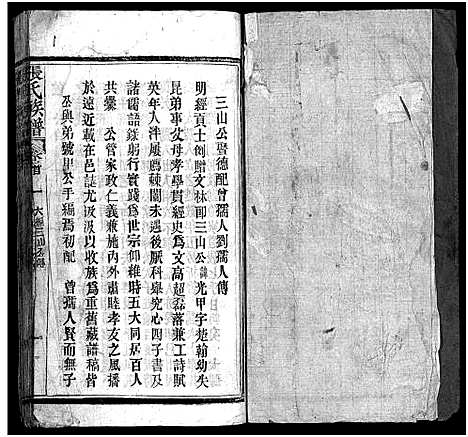 三山公暨德配曾孺人劉孺人傳
明經貢士例贈文林郎三山公諱光甲字楚翰幼失
昆弟事父母孝學貫經史為文高超磊落兼工詩賦
英年入泮屢薦棘闈未遇後厭科舉究心四子書及
諸儒語錄躬行實踐為世宗仰維時五大同居百人
共爨　公管家政仁義兼施內外肅睦孝友之風播
於遠近載在邑誌尤汲汲以收族為重舊藏譜稿皆
公與弟號　公手編焉初配　曾孺人賢而無子
張氏族譜
卷首